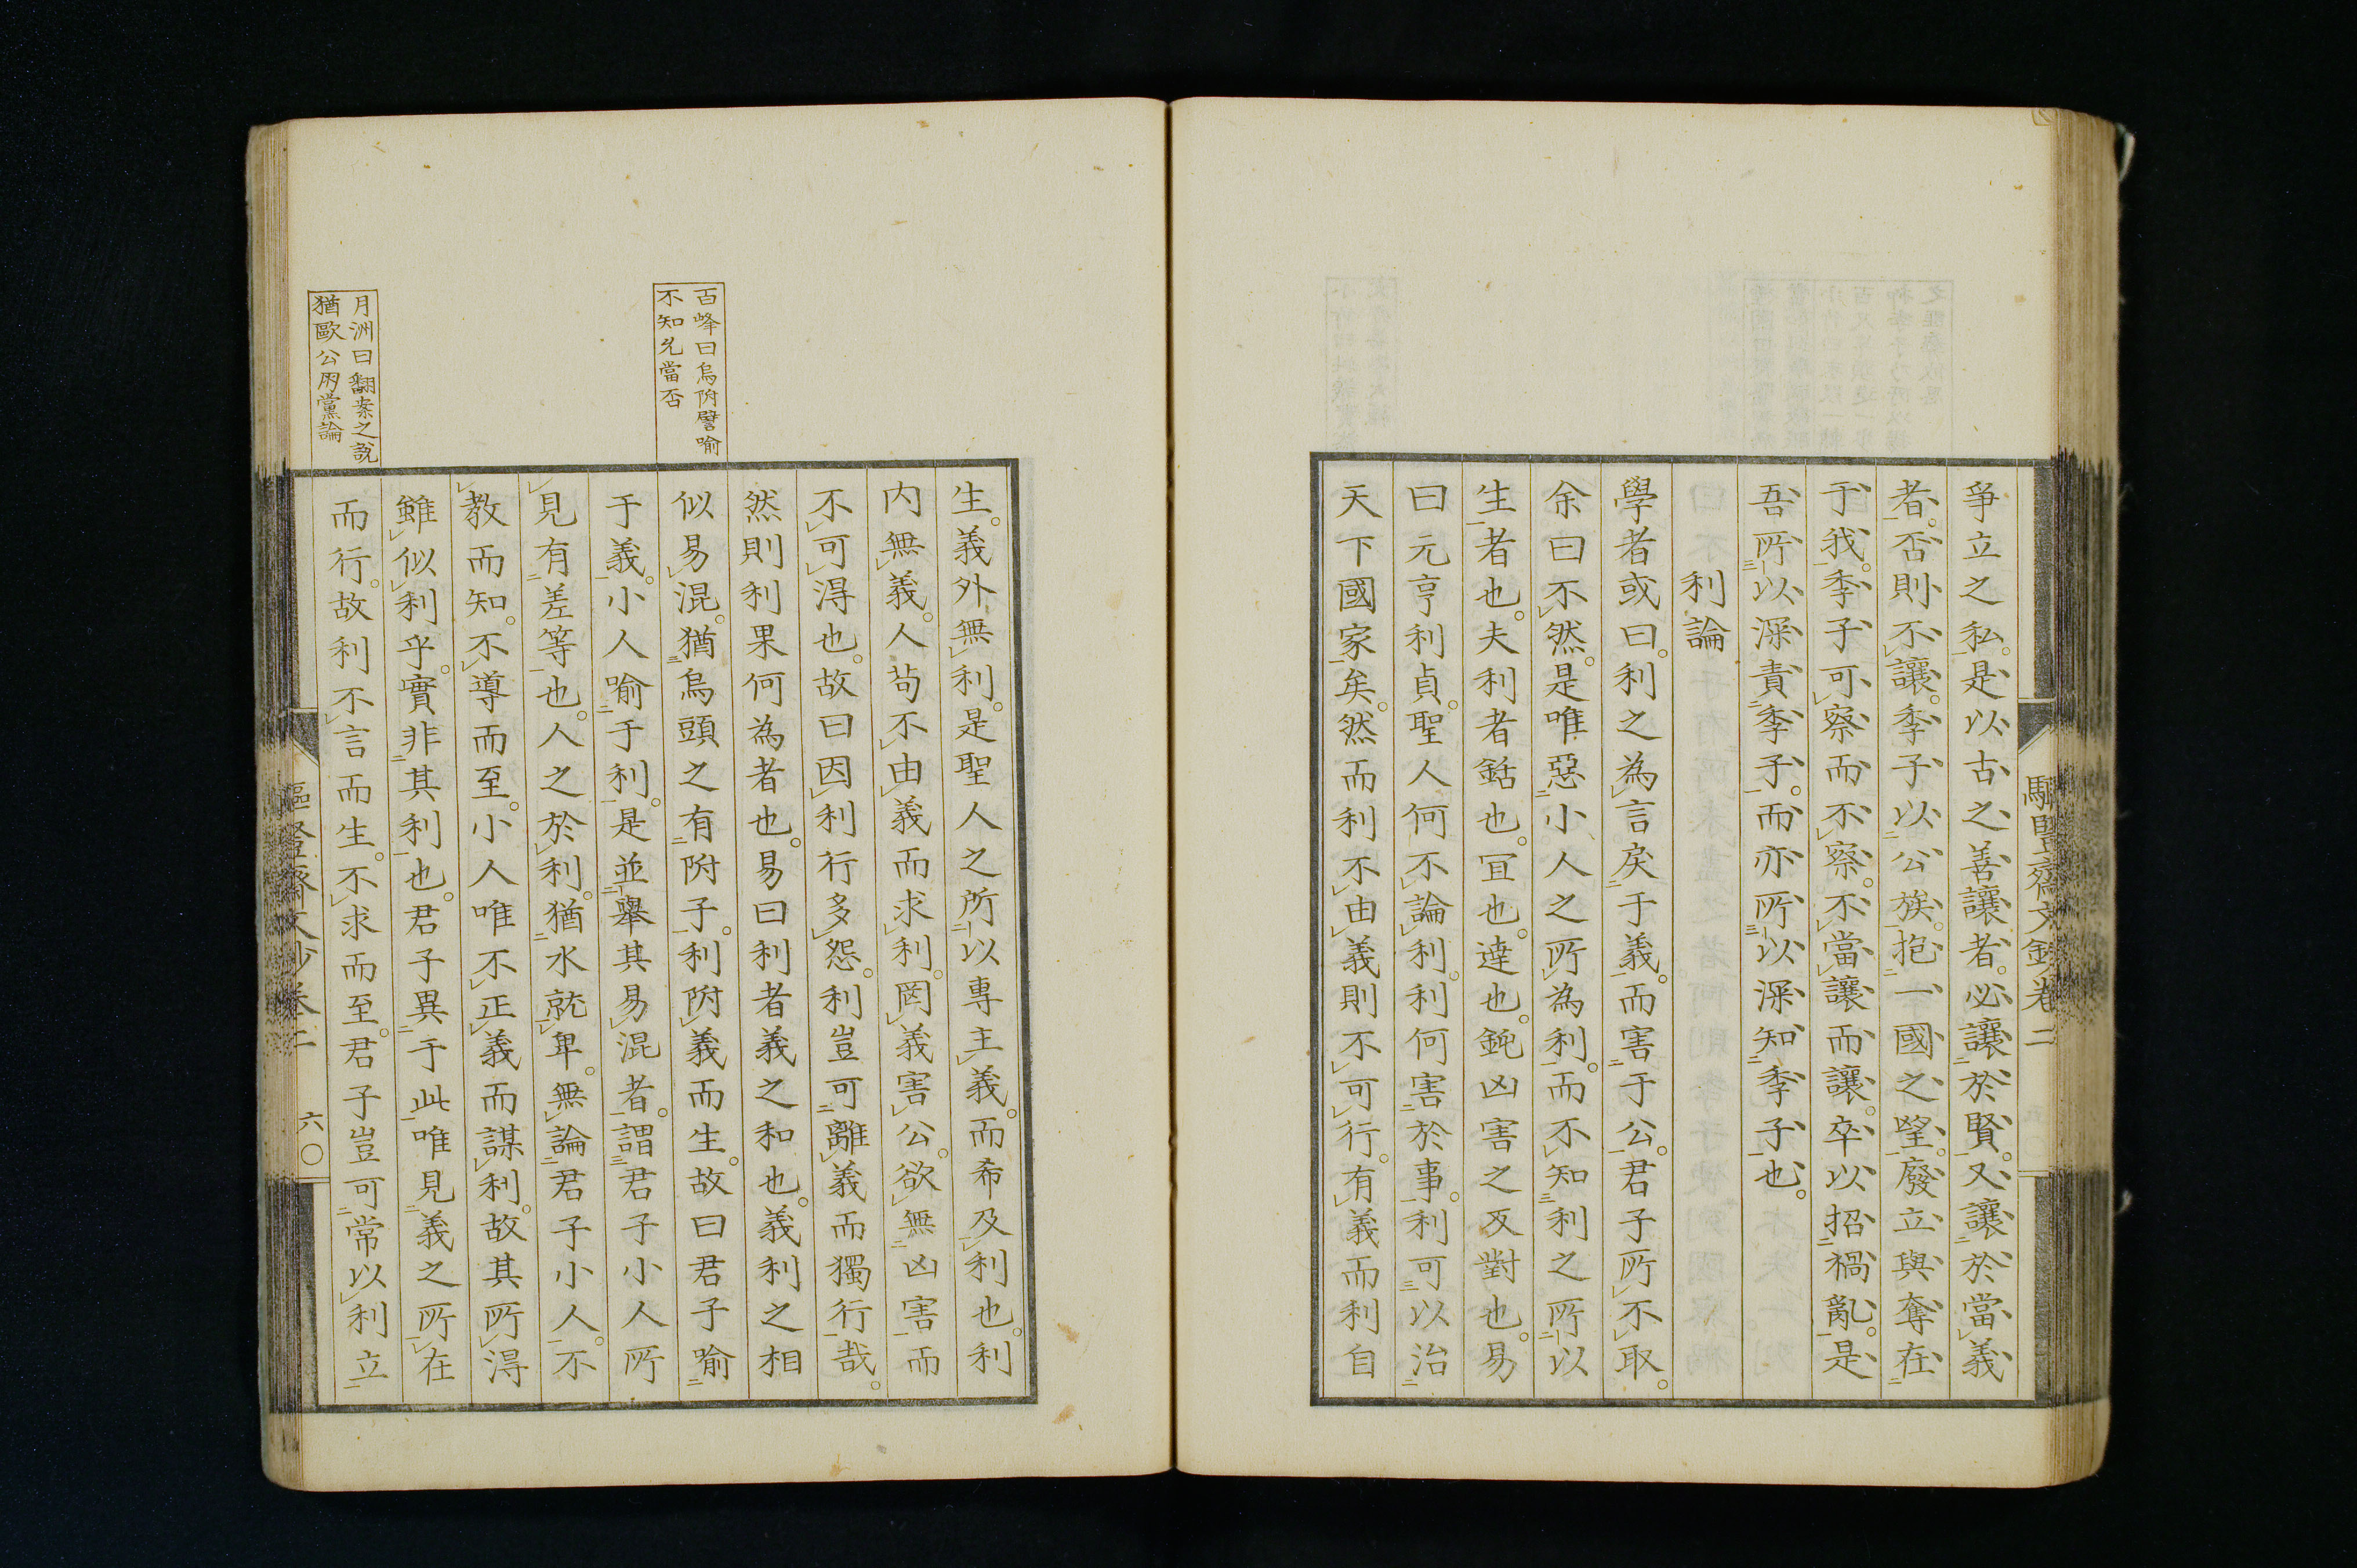 爭立之私。是以古之善讓者。必讓於賢。又讓於當義
者。否則不讓。季子以公族。抱一國之望。廢立與奪在
于我。季子可察而不察。不當讓而讓。卒以招禍亂。是
吾所以深責季子。而亦所以深知季子也。
利論
學者或曰。利之為言戾于義。而害于公。君子所不取。
余曰不然。是唯惡小人之所為利。而不知利之所以
生者也。夫利者銛也。宜也。達也。鈍凶害之反對也。易
曰元亨利貞。聖人何不論利。利何害於事。利可以治
天下國家矣。然而利不由義則不可行。有義而利自
生。義外無利。是聖人之所以專主義。而希及利也。利
内無義。人苟不由義而求利。罔義害公。欲無凶害而
不可得也。故曰因利行多怨。利豈可離義而獨行哉。
然則利果何為者也。易曰利者義之和也。義利之相
似易混。猶烏頭之有附子。利附義而生。故曰君子喻
于義。小人喻于利。是並舉其易混者。謂君子小人所
見有差等也。人之於利。猶水就卑。無論君子小人。不
教而知。不導而至。小人唯不正義而謀利。故其所得
雖似利乎。實非其利也。君子異于此。唯見義之所在
而行。故利不言而生。不求而至。君子豈可常以利立
百峰曰烏附譬喻
不知允當否
月洲曰翻案之說
猶歐公朋黨論
文鈔卷二
六〇